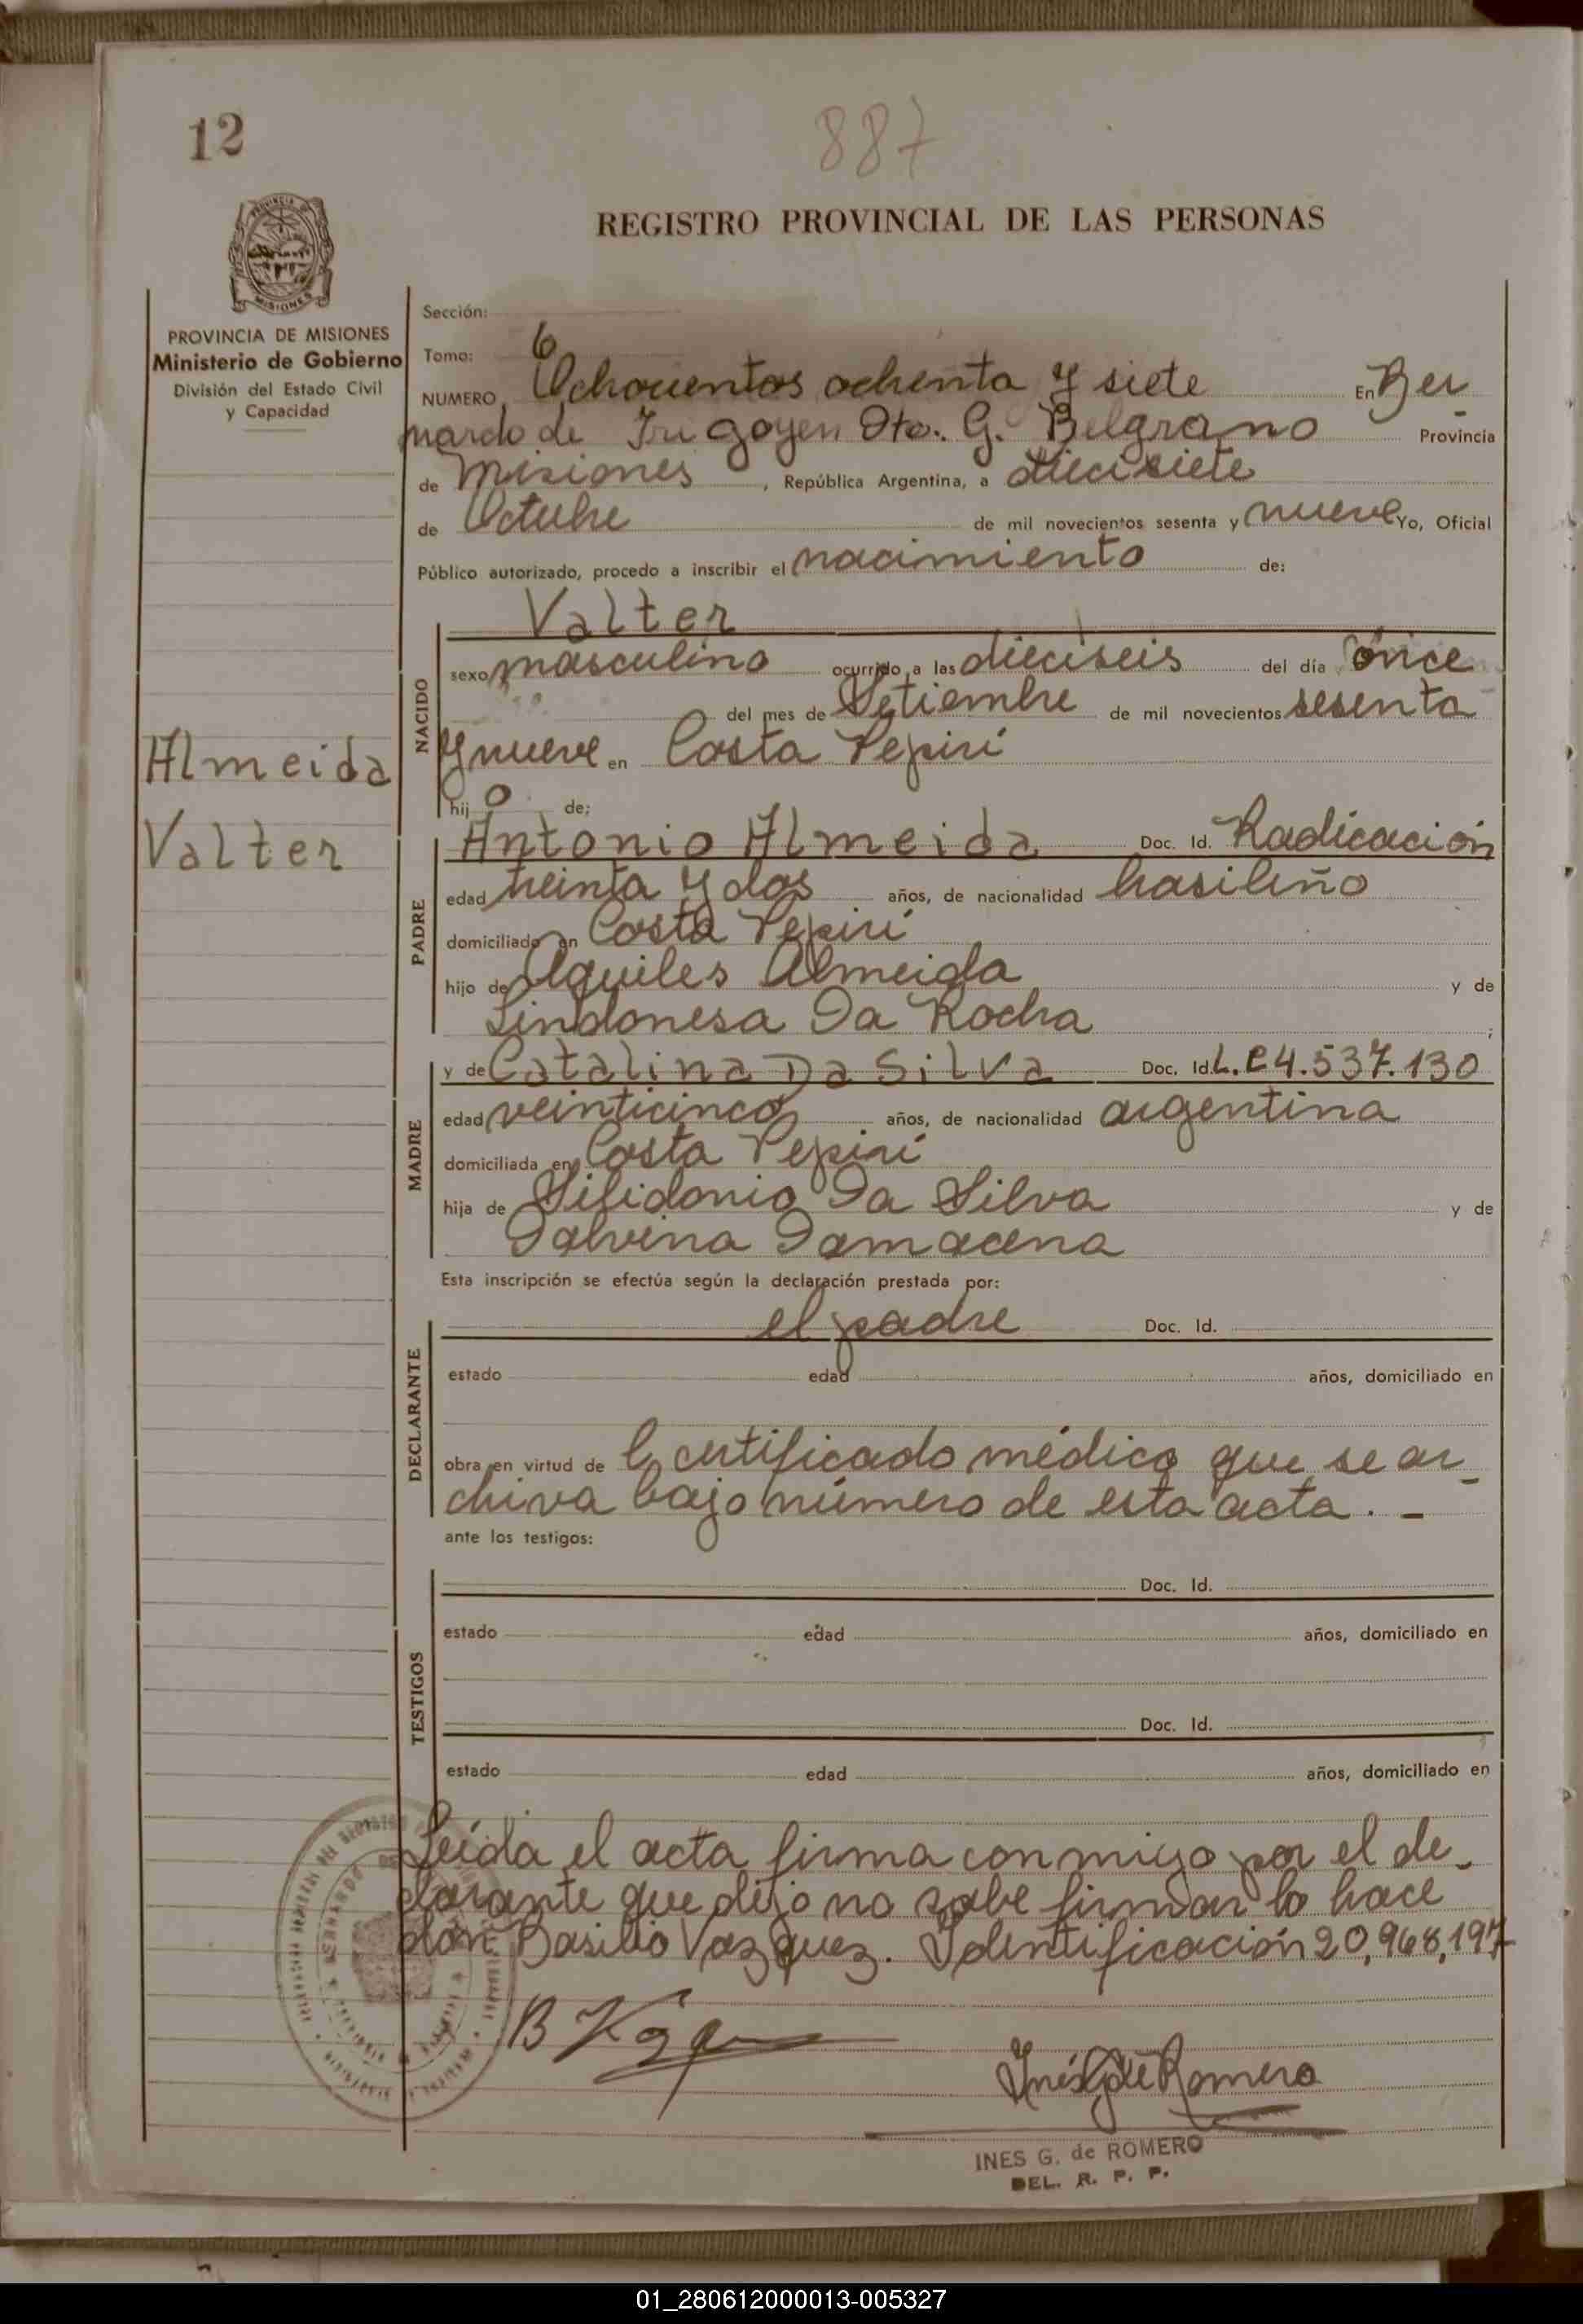 12
887
REGISTRO PROVINCIAL DE LAS PERSONAS
PROVINCIA DE MISIONES
Ministerio de Gobierno
División del Estado Civil
y Capacidad
Almeida
Valter
Sección:
Tomo: 6
NUMERO Ochocientos ochenta y siete En Ber
nardo de Irigoyen Dto. G. Belgrano Provincia
de Misiones, República Argentina, a diecisiete
de Octubre de mil novecientos sesenta y nueve Yo, Oficial
Público autorizado, procedo a inscribir el nacimiento de:
NACIDO
Valter
sexo masculino ocurrido a las dieciseis del día once
del mes de Setiembre de mil novecientos sesenta
y nueve en Costa Pepirí
hijo de:
PADRE
Antonio Almeida Doc. Id. Radicación
edad treinta y dos años, de nacionalidad brasileño
domiciliado en Costa Pepirí
hijo de Aquiles Almeida y de
Lindonesa Da Rocha ;
MADRE
y de Catalina Da Silva Doc. Id. L.C 4.537.130
edad veinticinco años, de nacionalidad argentina
domiciliada en Costa Pepirí
hija de Sifidonio Da Silva y de
Dalvina Damacena
Esta inscripción se efectúa según la declaración prestada por:
DECLARANTE
el padre Doc. Id.
estado edad años, domiciliado en
obra en virtud de certificado médico que se ar_
chiva bajo número de esta acta. -
ante los testigos:
TESTIGOS
Doc. Id.
estado edad años, domiciliado en
Doc. Id.
estado edad años, domiciliado en
Leída el acta firma conmigo por el de_
clarante que dijo no sabe firmar lo hace
don Basilio Vazquez. Identificación 20,968,197
Inés G de Romero
INES G. de ROMERO
DEL. R. P. P.
01_280612000013-005327